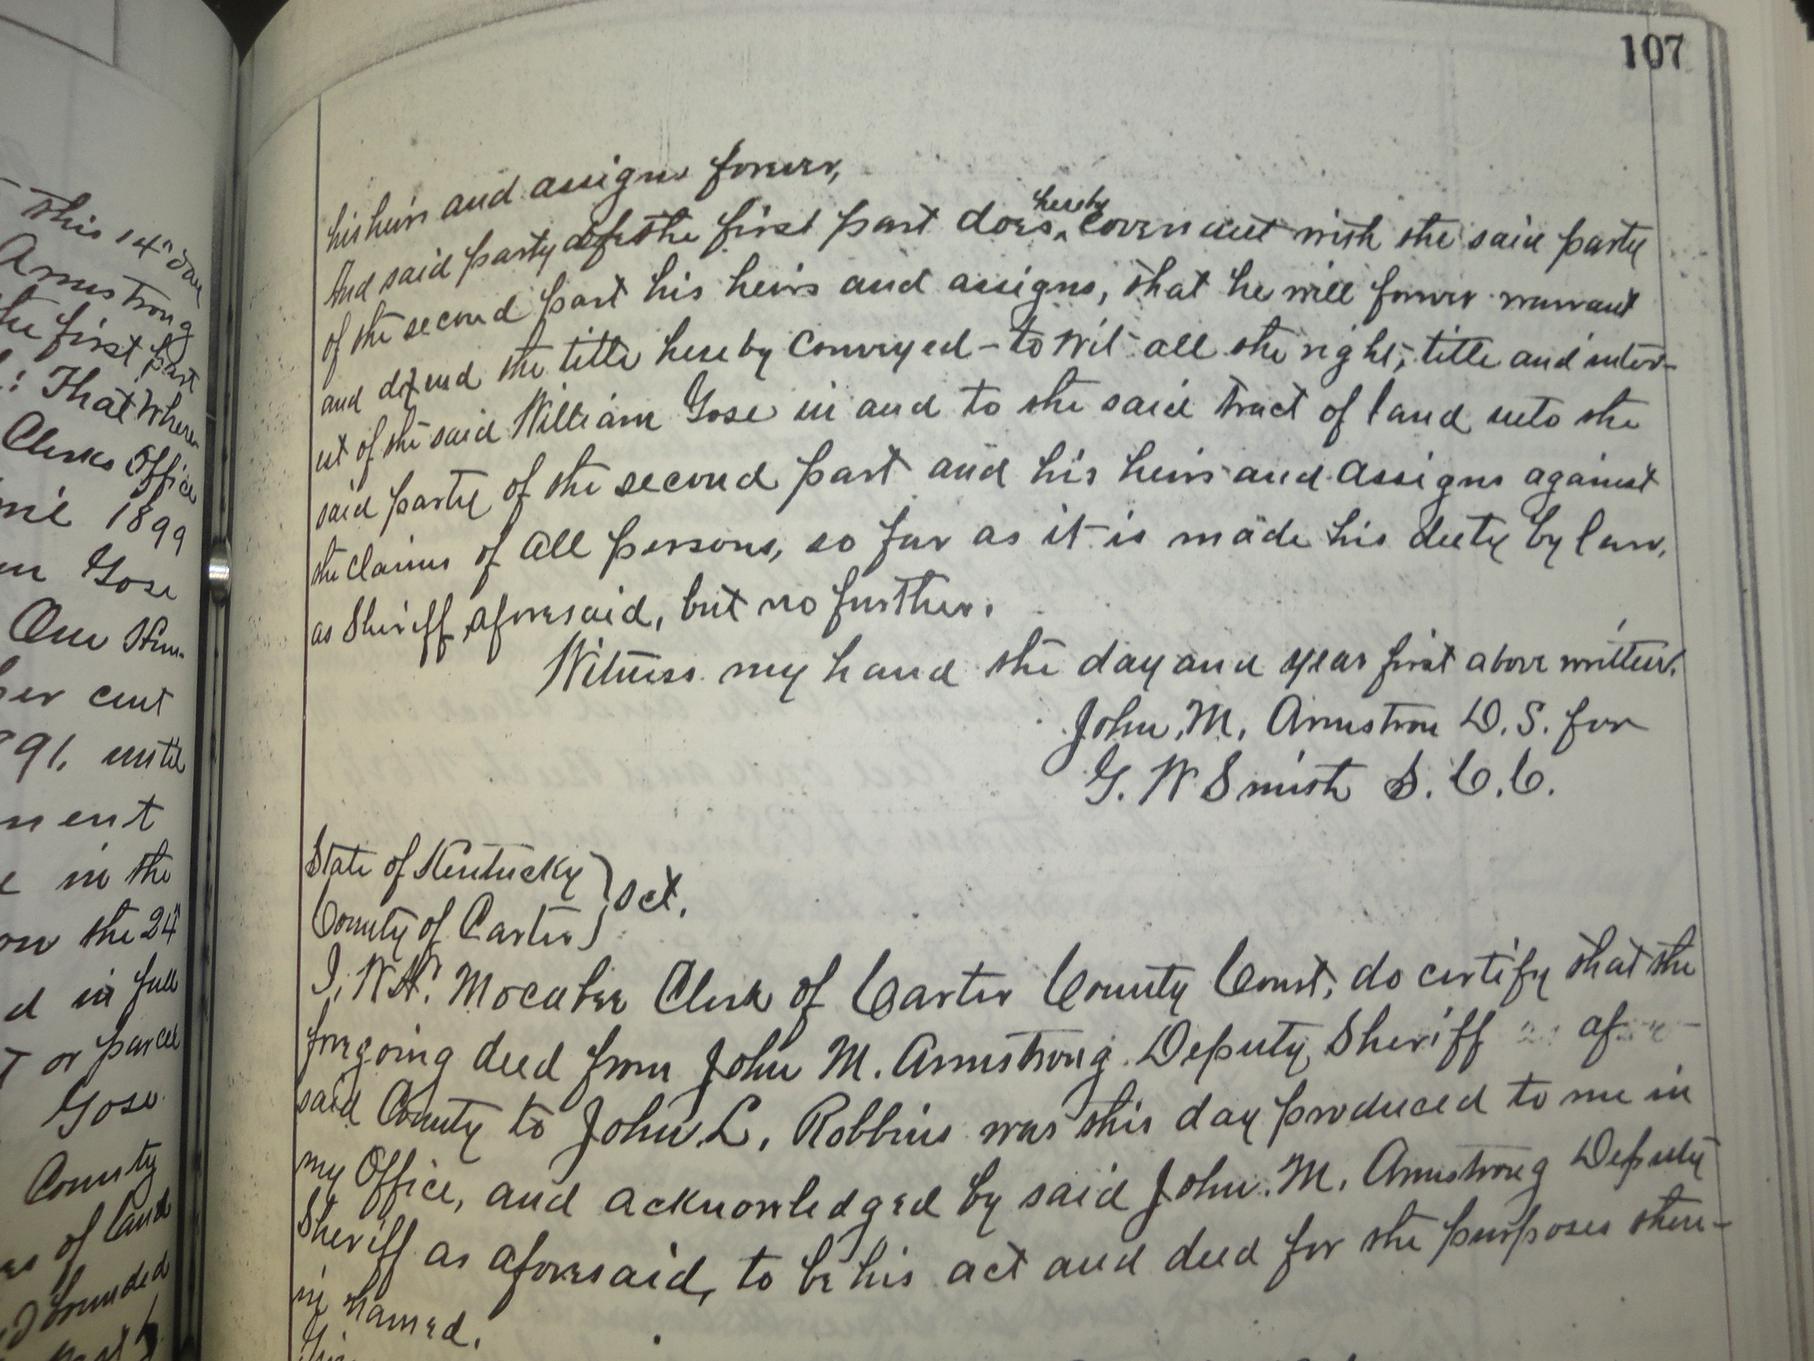 This 14" day
Armstrong
the first part
: That Where
Clerks Office
1899
Gose
One Hun-
per cent
91, until
ment
in the
on the 24"
d in full
or parcel
Gose
County
of land
bounded
107
his heirs and assigns forever,
And said party of the first part does hereby covenant with the said party
of the second part his heirs and assigns, that he will forever warrant
and defend the title hereby conveyed - to wit all the right, title and inter-
est of the said William Gose in and to the said tract of land unto the
said party of the second part and his heirs and assigns against
the claims of all persons, so far as it is made his duty by law,
as Sheriff aforesaid, but no further.
Witness my hand the day and year first above written.
John, M, Armstron D. S. for
G. W Smith S. C. C.
State of Kentucky } Sct.
County of Carter }
I, W.H. Mocaber Clerk of Carter County Court, do certify that the
foregoing deed from John M. Armstrong Deputy Sheriff af
said County to John, L, Robbins was this day produced to me in
my Office, and acknowledged by said John. M, Armstrong Deputy
Sheriff as aforesaid, to be his act and deed for the purposes there-
in named.